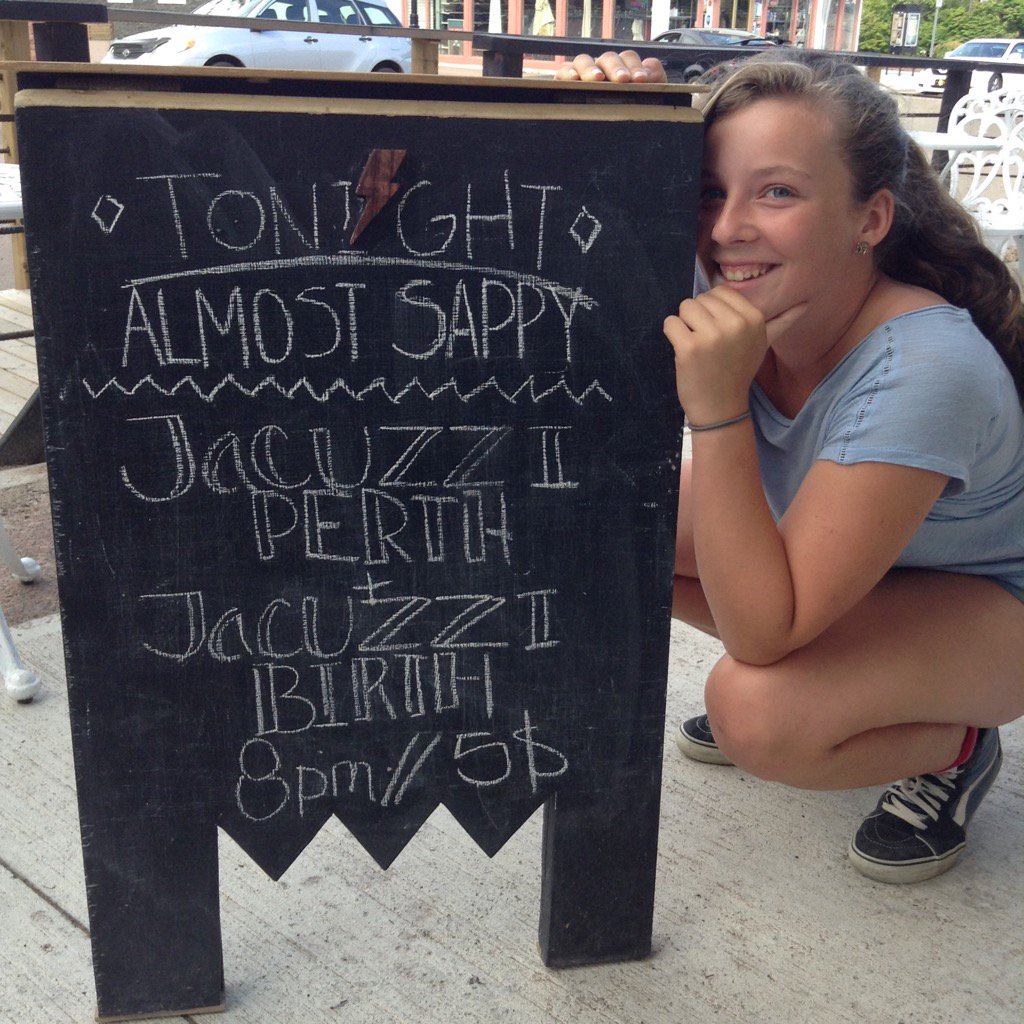 TONIGHT
ALMOST SAPPY
JACUZZI
PERTH
+
JACUZZI
BIRTH
8pm // 5$